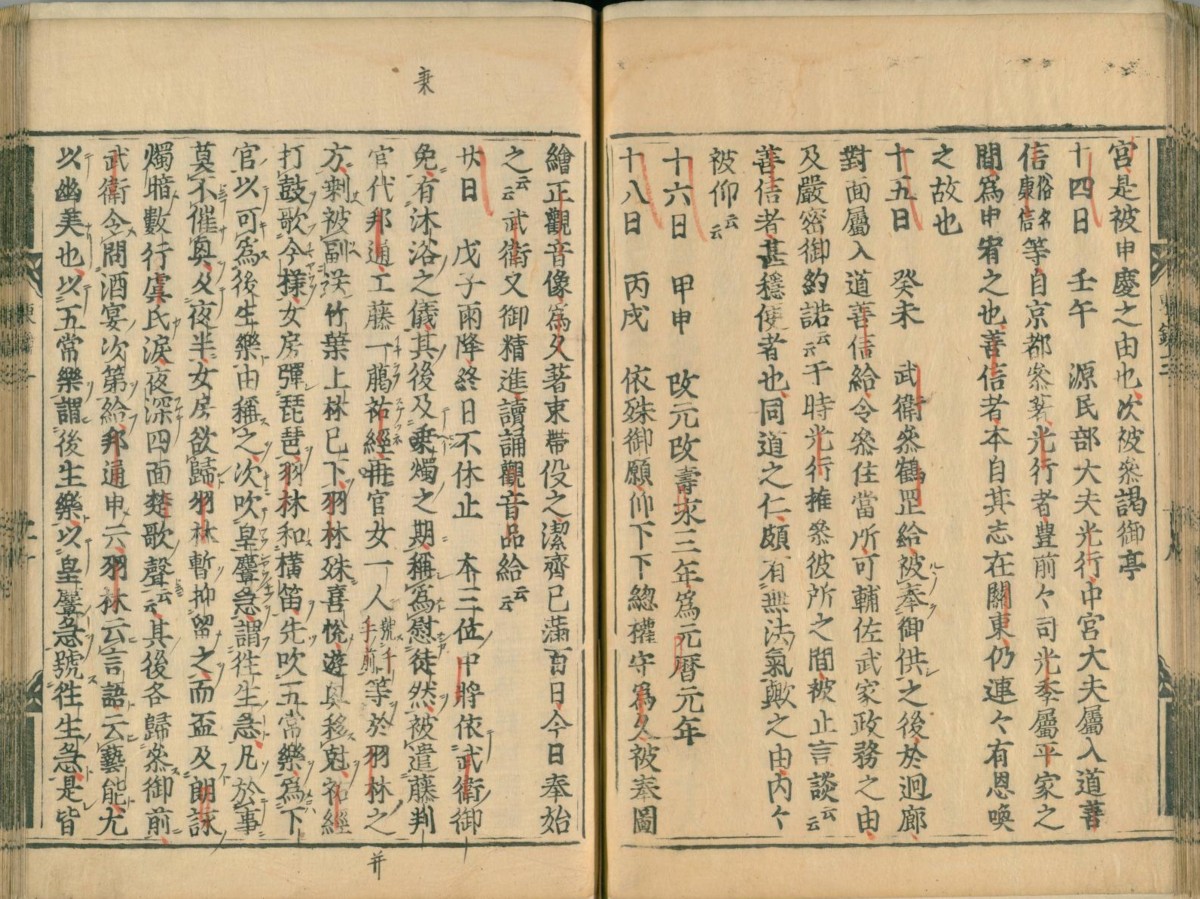 宮是被申慶之由也次被叅謁御亭
十四日　壬午　源民部大夫光行中宮大夫屬入道善
信俗名康信等自京都叅著光行者豊前々司光季屬平家之
間爲申宥之也善信者本自其志在關東仍連々有恩喚
之故也
十五日　癸未　武衛叅鶴罡給被奉御供之後於迴廊
對面屬入道善信給令叅住當所可輔佐武家政務之由
及嚴密御約諾云云于時光行推叅彼所之間被止言談云云
善信者甚穩便者也同道之仁頗有無法氣歟之由内々
被仰云云
十六日　甲申　改元改壽永三年爲元暦元年
十八日　丙戌　依殊御願仰下下總權守爲久被奉圖
繪正觀音像爲久著束帶役之潔齊已滿百日今日奉始
之云云武衛又御精進讀誦觀音品給云云
廿日　戊子雨降終日不休止　本三位中將依武衛御
免有沐浴之儀其後及秉燭之期稱爲慰徒然被遣藤判
官代邦通工藤一﨟祐經并官女一人號千手前等於羽林之
方剰被副送竹葉上林已下羽林殊喜悅遊興移剋祐經
打鼓歌今様女房彈琵琶羽林和横笛先吹五常樂爲下
官以可爲後生樂由稱之次吹皇麞急謂徃生急凡於事
莫不催興及夜半女房欲歸羽林暫抑留之而盃及朗詠
燭暗數行虞氏淚夜深四面楚歌聲云云其後各歸叅御前
武衛令問酒宴次第給邦通申云羽林云言語云藝能尤
以幽美也以五常樂謂後生樂以皇麞急號徃生急是皆
秉
并